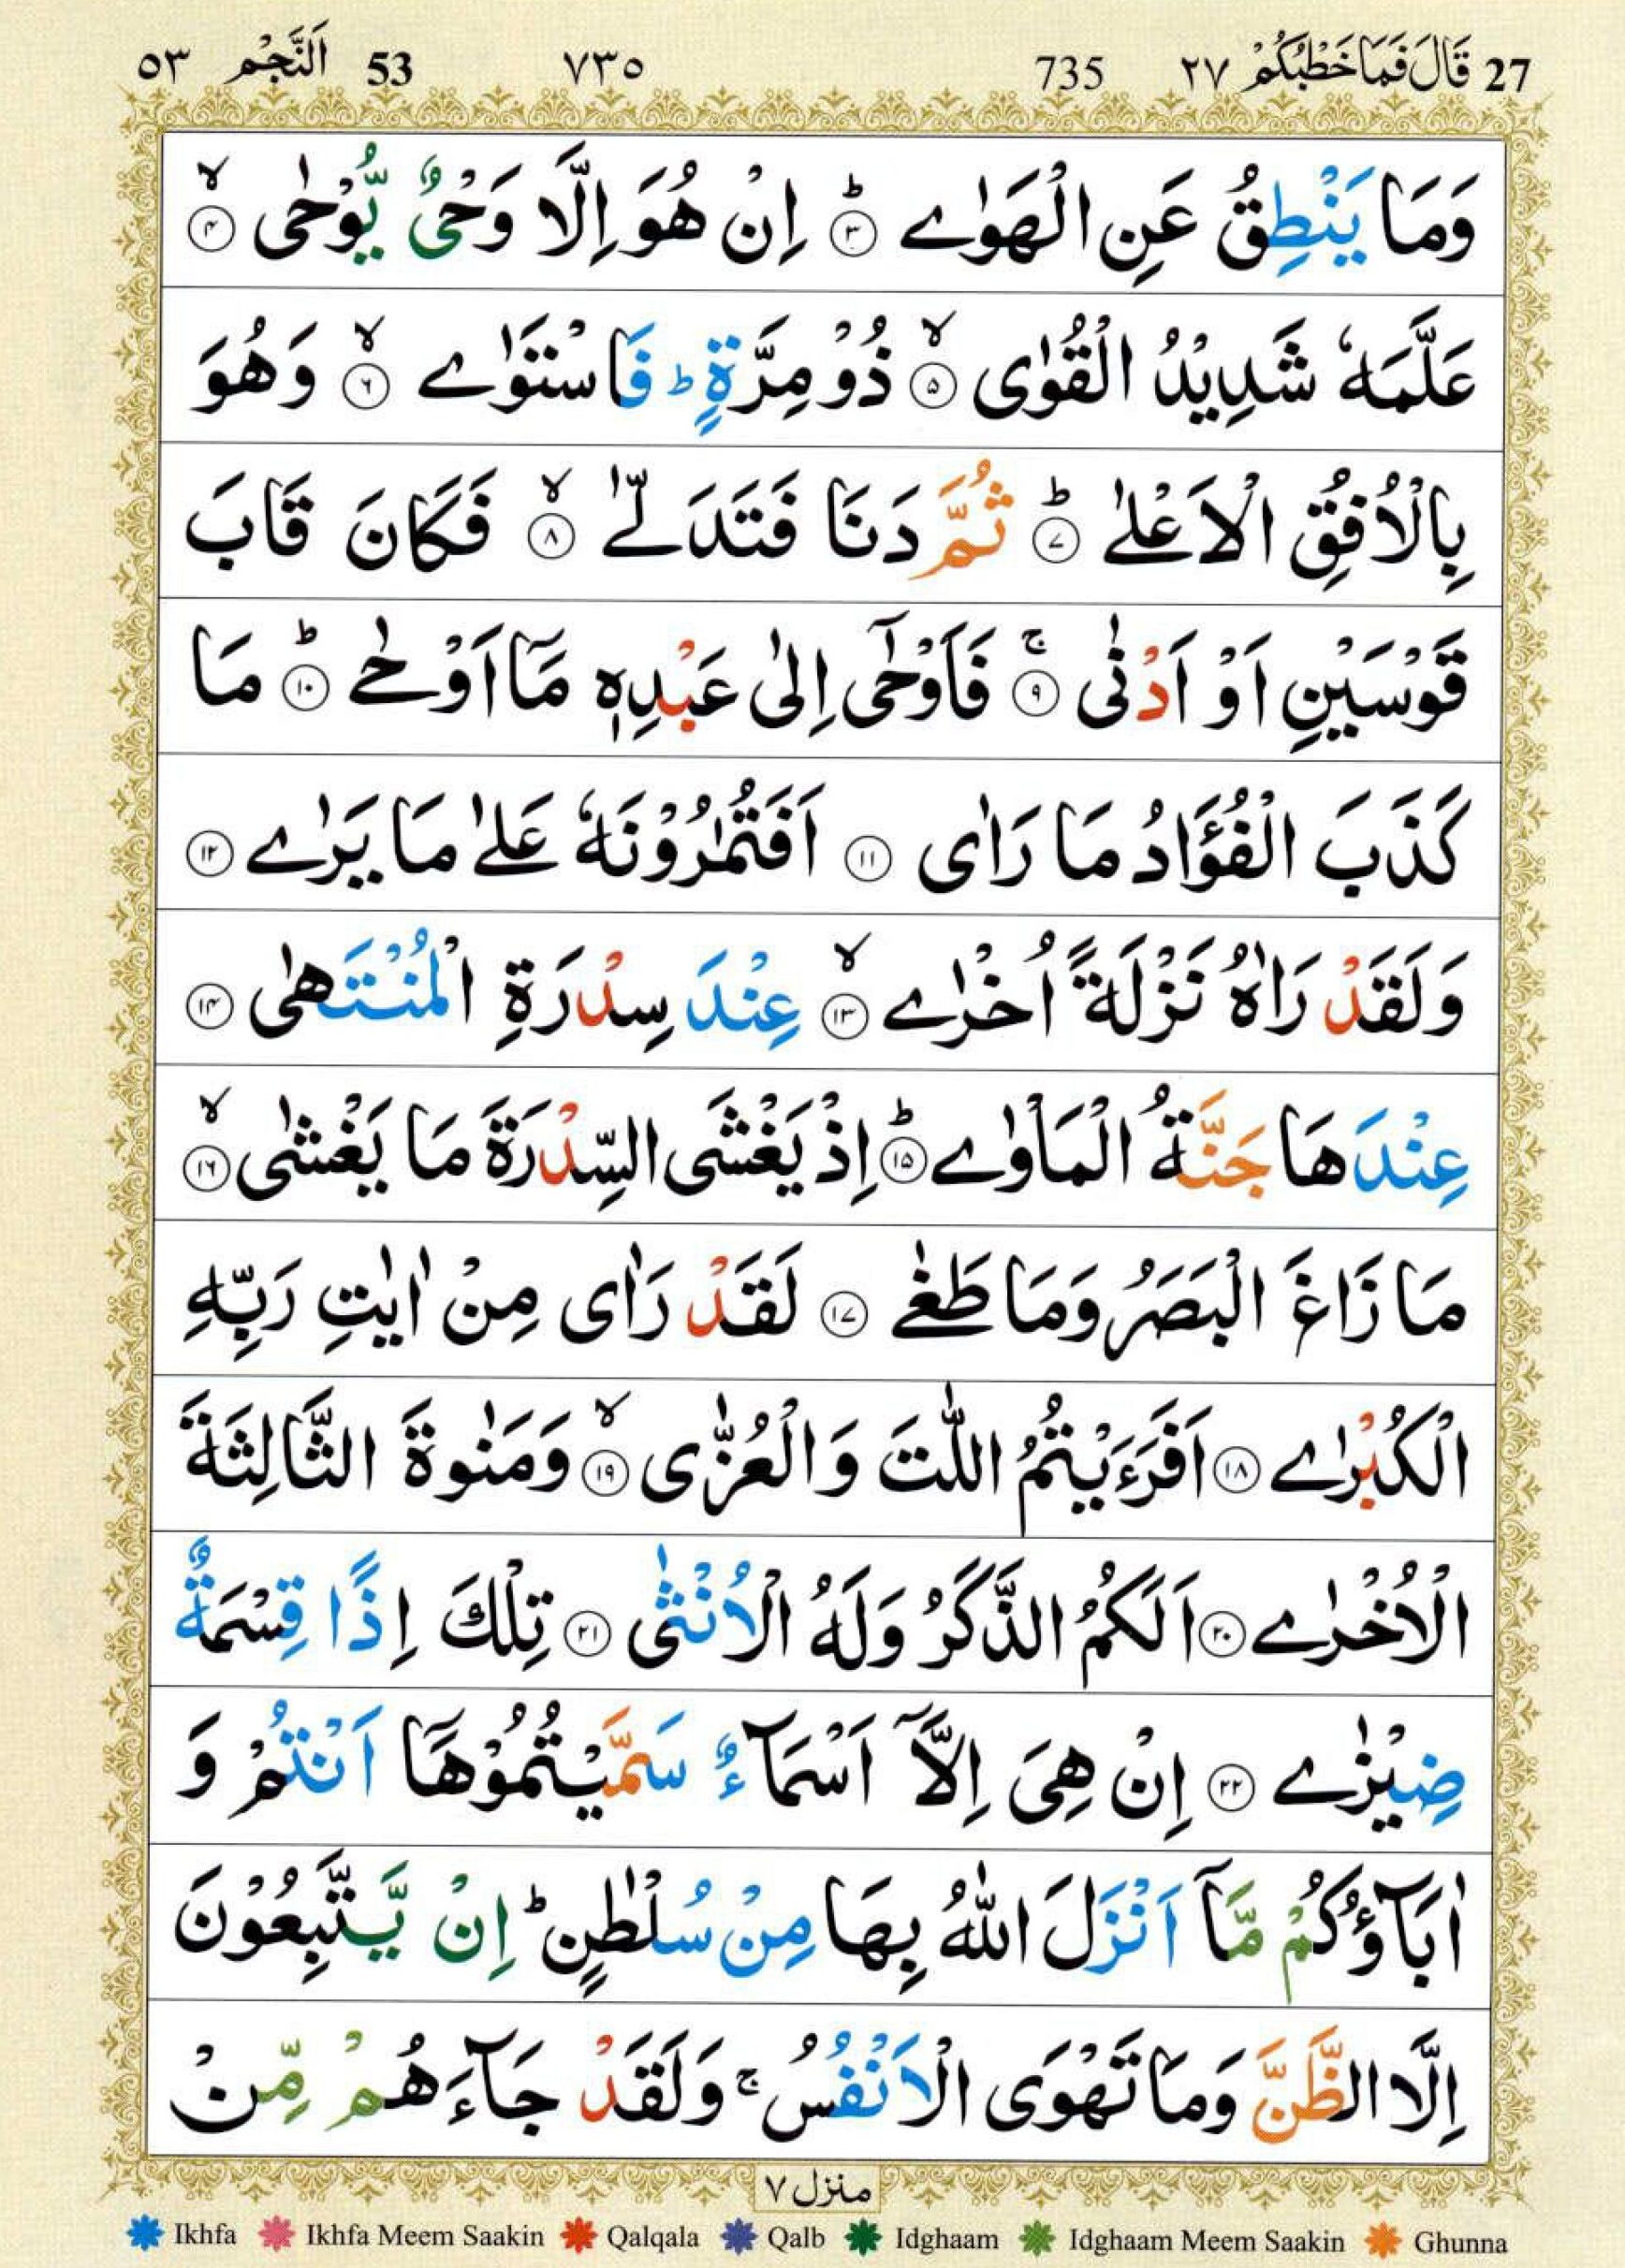 27 قَالَ فَمَا خَطْبُكُمْ ٢٧ 735 ٧٣٥ 53 اَلنَّجْم ٥٣
وَمَا يَنْطِقُ عَنِ الْهَوٰىؕ ۝۳ اِنْ هُوَ اِلَّا وَحْیٌ يُّوْحٰىۙ ۝۴
عَلَّمَهٗ شَدِيْدُ الْقُوٰىۙ ۝۵ ذُوْ مِرَّةٍؕ فَاسْتَوٰىۙ ۝۶ وَهُوَ
بِالْاُفُقِ الْاَعْلٰىؕ ۝۷ ثُمَّ دَنَا فَتَدَلّٰىۙ ۝۸ فَكَانَ قَابَ
قَوْسَيْنِ اَوْ اَدْنٰىۚ ۝۹ فَاَوْحٰۤى اِلٰى عَبْدِهٖ مَاۤ اَوْحٰىؕ ۝۱۰ مَا
كَذَبَ الْفُؤَادُ مَا رَاٰى ۝۱۱ اَفَتُمٰرُوْنَهٗ عَلٰى مَا يَرٰى ۝۱۲
وَلَقَدْ رَاٰهُ نَزْلَةً اُخْرٰىۙ ۝۱۳ عِنْدَ سِدْرَةِ الْمُنْتَهٰى ۝۱۴
عِنْدَهَا جَنَّةُ الْمَاْوٰىؕ ۝۱۵ اِذْ يَغْشَى السِّدْرَةَ مَا يَغْشٰىۙ ۝۱۶
مَا زَاغَ الْبَصَرُ وَمَا طَغٰى ۝۱۷ لَقَدْ رَاٰى مِنْ اٰيٰتِ رَبِّهِ
الْكُبْرٰى ۝۱۸ اَفَرَءَيْتُمُ اللّٰتَ وَالْعُزّٰىۙ ۝۱۹ وَمَنٰوةَ الثَّالِثَةَ
الْاُخْرٰى ۝۲۰ اَلَكُمُ الذَّكَرُ وَلَهُ الْاُنْثٰى ۝۲۱ تِلْكَ اِذًا قِسْمَةٌ
ضِيْزٰى ۝۲۲ اِنْ هِىَ اِلَّاۤ اَسْمَآءٌ سَمَّيْتُمُوْهَاۤ اَنْتُمْ وَ
اٰبَآؤُكُمْ مَّاۤ اَنْزَلَ اللّٰهُ بِهَا مِنْ سُلْطٰنٍؕ اِنْ يَّتَّبِعُوْنَ
اِلَّا الظَّنَّ وَمَا تَهْوَى الْاَنْفُسُۚ وَلَقَدْ جَآءَهُمْ مِّنْ
منزل ٧
Ikhfa Ikhfa Meem Saakin Qalqala Qalb Idghaam Idghaam Meem Saakin Ghunna